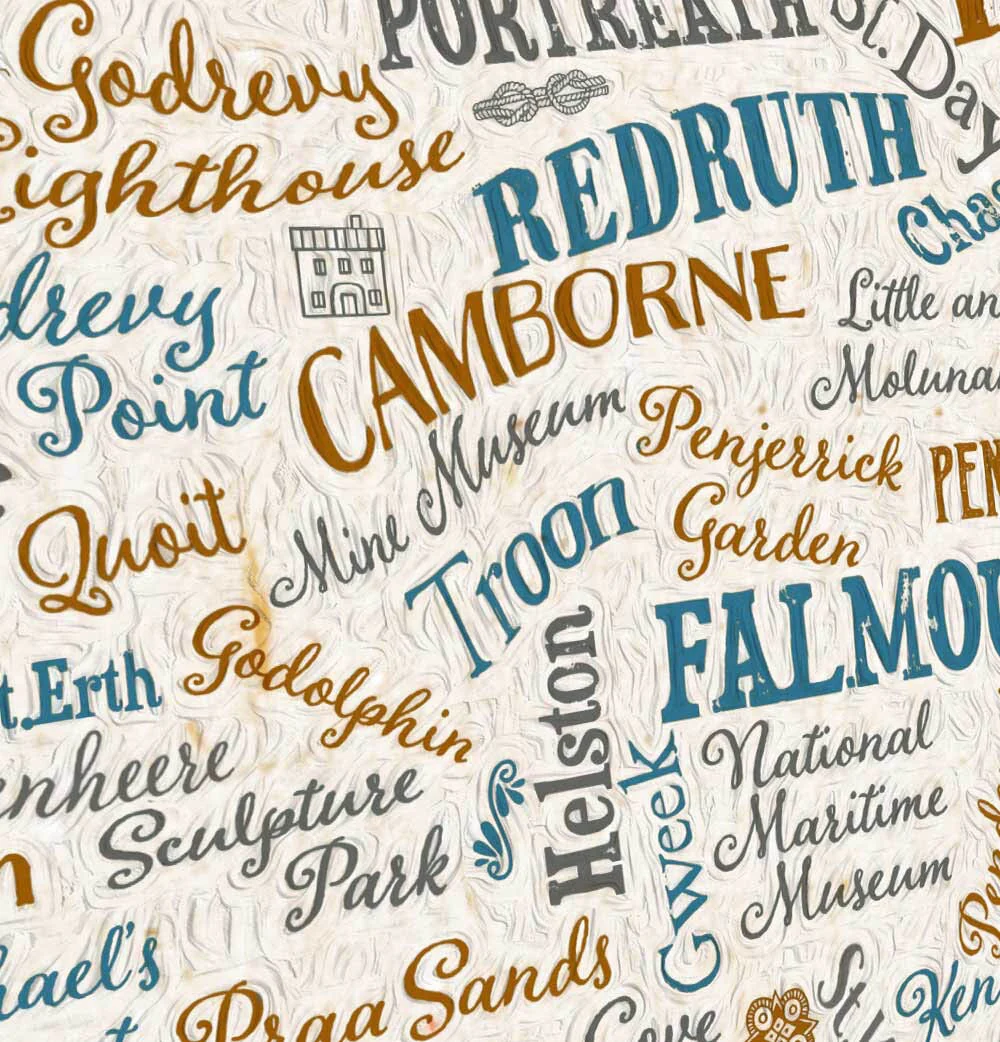 PORTREATH
St. Day
Godrevy
Lighthouse
REDRUTH
CAMBORNE
Little an
Point
Mine Museum
Penjerrick
Garden
PEN
Quoit
Troon
FALMOU
t.Erth
Godolphin
Helston
Gweek
National
Maritime
Museum
enheere
Sculpture
Park
hael's
Praa Sands
Cove
Ken